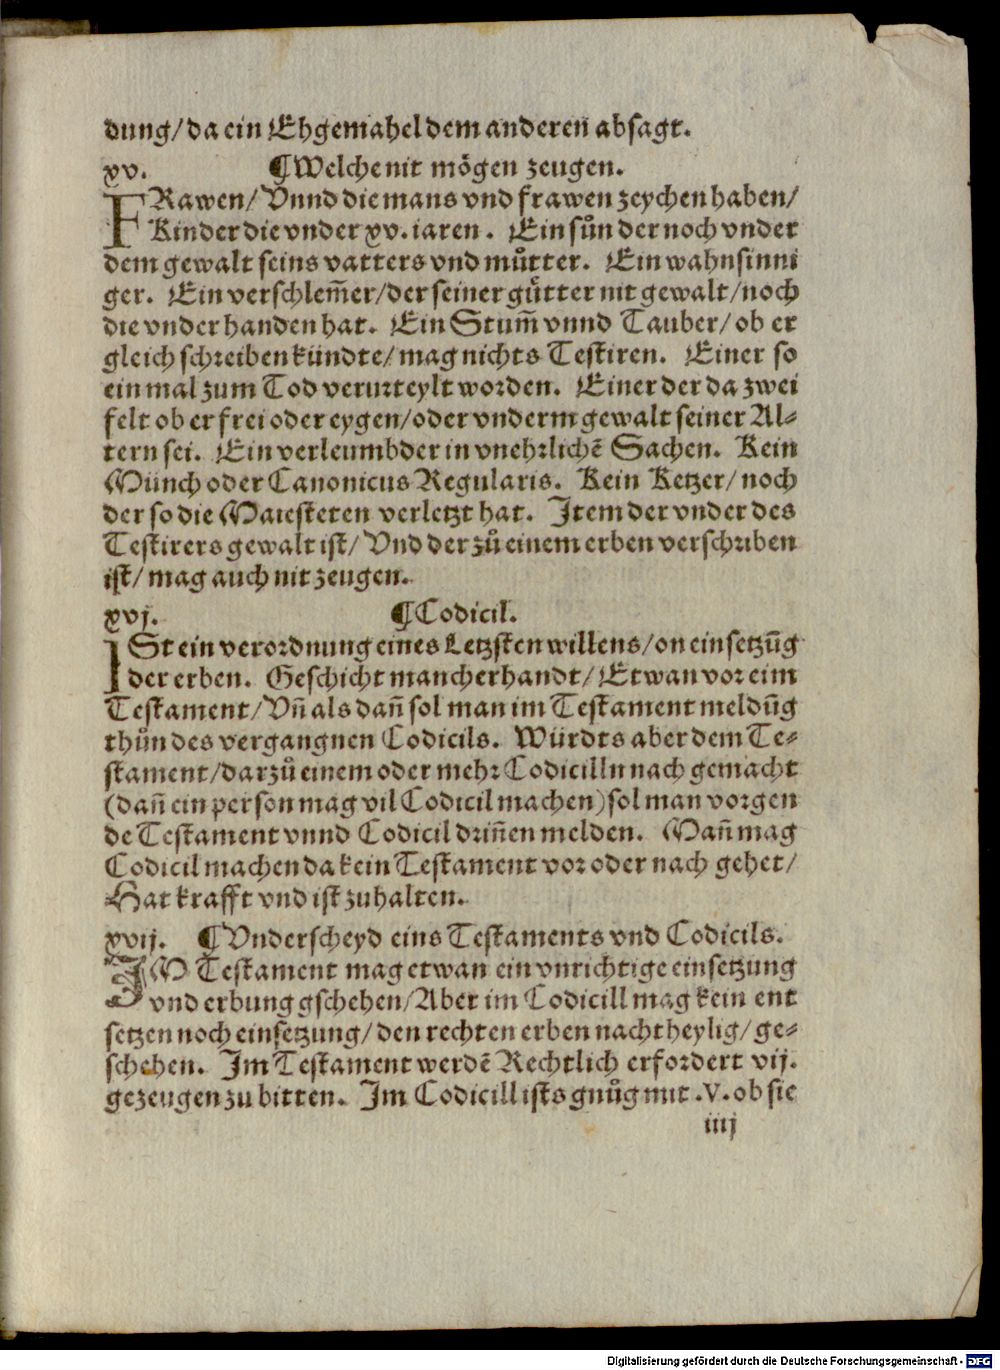 dung/ da ein Ehgemahel dem anderen absagt.
xv. ¶Welche nit mögen zeugen.
FRawen/ Vnnd die mans vnd frawen zeychen haben/
Kinder die vnder xv. iaren. Ein sůn der noch vnder
dem gewalt seins vatters vnd můtter. Ein wahnsinni
ger. Ein verschlem̃er/ der seiner gůtter nit gewalt/ noch
die vnder handen hat. Ein Stum̃ vnnd Tauber/ ob er
gleich schreiben kündte/ mag nichts Testiren. Einer so
ein mal zum Tod verurteylt worden. Einer der da zwei
felt ob er frei oder eygen/ oder vnderm gewalt seiner Al⸗
tern sei. Ein verleumbder in vnehrlichẽ Sachen. Kein
Münch oder Canonicus Regularis. Kein Ketzer/ noch
der so die Maiesteten verletzt hat. Item der vnder des
Testirers gewalt ist/ Vnd der zů einem erben verschriben
ist/ mag auch nit zeugen.
xvj. ¶Codicil.
ISt ein verordnung eines Letzsten willens/ on einsetzũg
der erben. Geschicht mancherhandt/ Etwan vor eim
Testament/ Vñ als dañ sol man im Testament meldũg
thůn des vergangnen Codicils. Würdts aber dem Te⸗
stament/ darzů einem oder mehr Codicilln nach gemacht
(dañ ein person mag vil Codicil machen) sol man vorgen
de Testament vnnd Codicil driñen melden. Mañ mag
Codicil machen da kein Testament vor oder nach gehet/
Hat krafft vnd ist zuhalten.
xvij. ¶Vnderscheyd eins Testaments vnd Codicils.
IM Testament mag etwan ein vnrichtige einsetzung
vnd erbung gschehen/ Aber im Codicill mag kein ent
setzen noch einsetzung/ den rechten erben nachtheylig/ ge⸗
schehen. Im Testament werdẽ Rechtlich erfordert vij.
gezeugen zu bitten. Im Codicill ists gnůg mit .V. ob sie
iiij
Digitalisierung gefördert durch die Deutsche Forschungsgemeinschaft - DFG